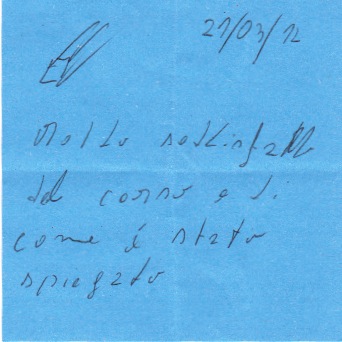 21/03/12
Molto soddisfatto
del corso e di
come è stato
spiegato